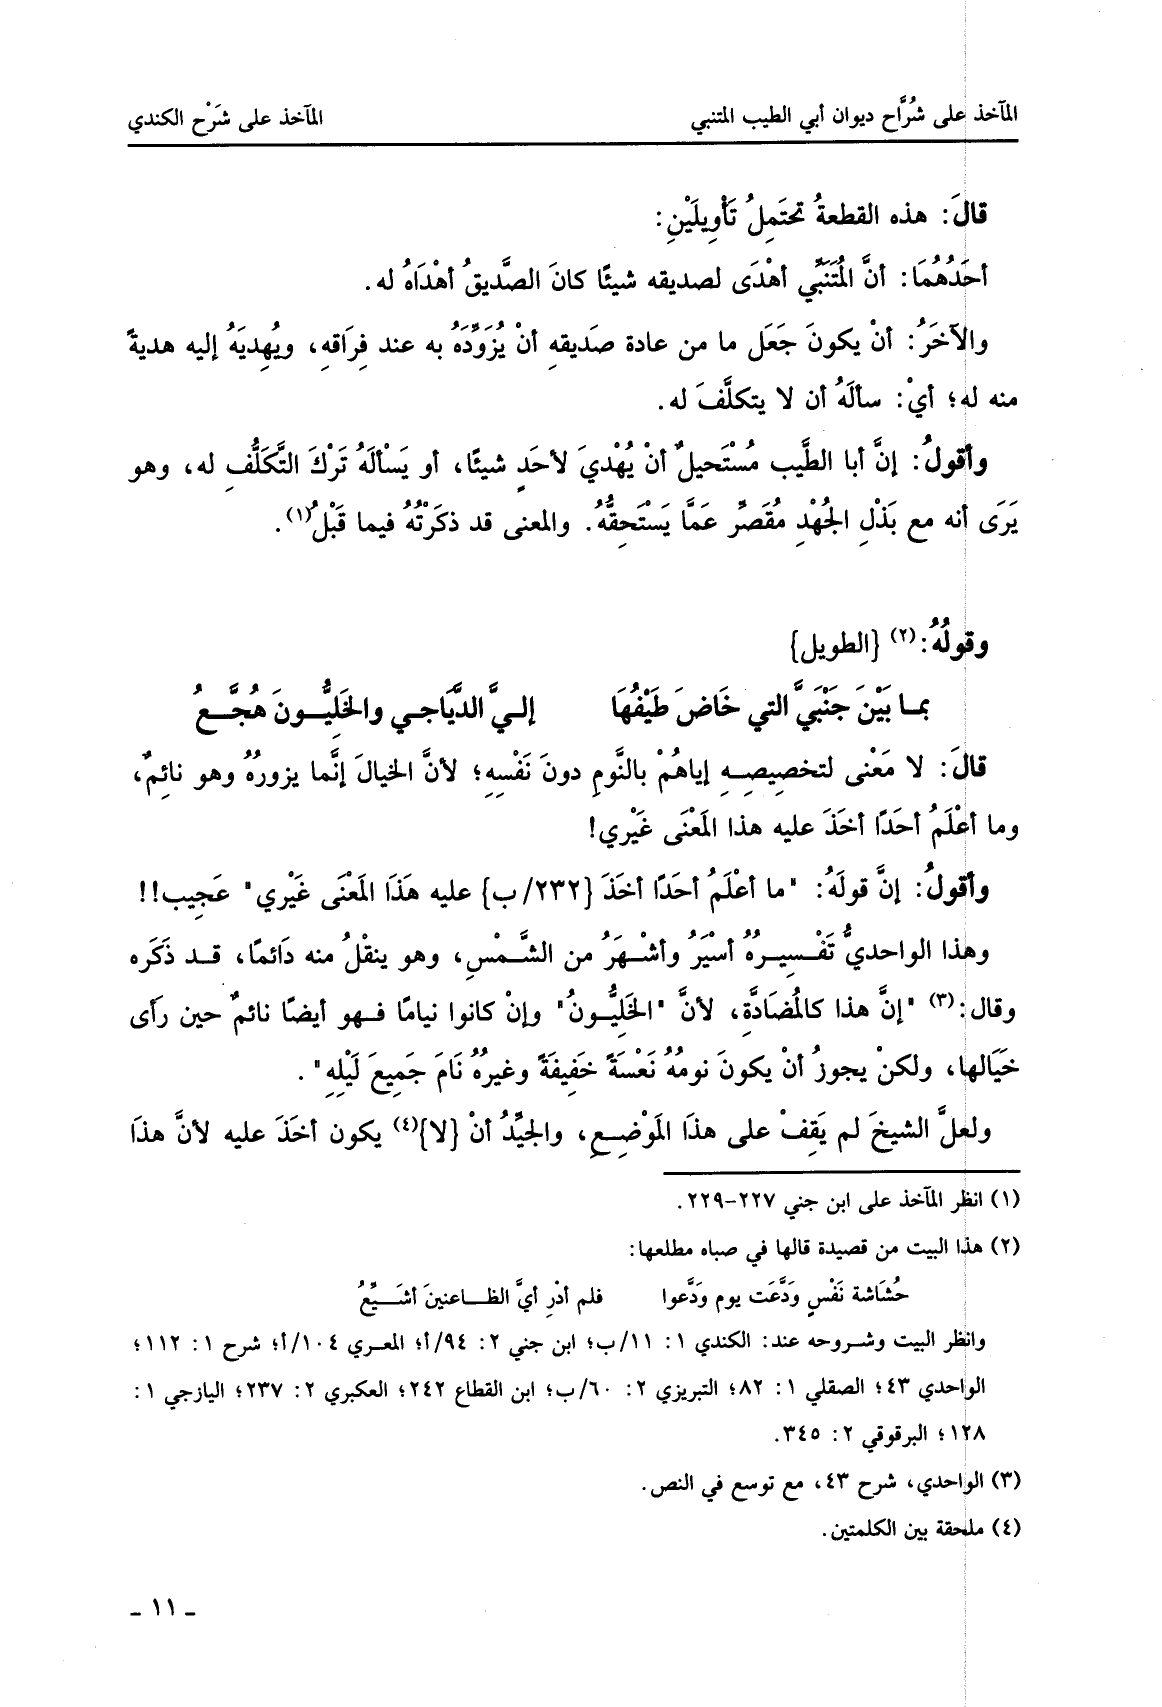 المآخذ على شُرَّاح ديوان أبي الطيب المتنبي المآخذ على شَرْح الكندي
قالَ: هذه القطعةُ تحتَمِلُ تَأْوِيلَيْنِ:
أحَدُهُمَا: أنَّ المُتَنَبِّي أهْدَى لصديقه شيئًا كانَ الصَّديقُ أهْدَاهُ له.
والآخَرُ: أنْ يكونَ جَعَل ما من عادة صَديقهِ أنْ يُزَوِّدَهُ به عند فِرَاقهِ، ويُهدِيَهُ إليه هديةً
منه له؛ أيْ: سألَهُ أن لا يتكلَّفَ له.
وأقولُ: إنَّ أبا الطَّيب مُسْتَحيلٌ أنْ يُهْديَ لأحَدٍ شيئًا، أو يَسْألَهُ تَرْكَ التَّكَلُّفِ له، وهو
يَرَى أنه مع بَذْلِ الجُهْدِ مُقَصِّر عَمَّا يَسْتَحِقُّهُ. والمعنى قد ذكَرْتُهُ فيما قَبْلُ(١).
وقولُهُ:(٢) {الطويل}
بمـا بَيْنَ جَنْبَيَّ التي خَاضَ طَيْفُهَا إليَّ الدَّيَاجي والخَلِيُّـونَ هُجَّـعُ
قالَ: لا مَعْنى لتخصِيصِـهِ إياهُمْ بالنَّومِ دونَ نَفْسِهِ؛ لأنَّ الخيالَ إنَّما يزورُهُ وهو نائِمٌ،
وما أعْلَمُ أحَدًا أخَذَ عليه هذا المَعْنَى غَيْري!
وأقولُ: إنَّ قولَهُ: "ما أعْلَمُ أحَدًا أخَذَ {٢٣٢/ب} عليه هَذَا المَعْنَى غَيْري" عَجِيب!!
وهذا الواحديُّ تَفْـسِيـرُهُ أسْيَرُ وأشْـهَرُ من الشَّـمْسِ، وهو ينقلُ منه دَائمًا، قـد ذَكَره
وقال:(٣) "إنَّ هذا كالمُضَادَّةِ، لأنَّ "الخَلِيُّـونُ" وإنْ كانوا نيامًا فـهو أيضًا نائمٌ حين رَأى
خَيَالها، ولكنْ يجوزُ أنْ يكونَ نومُهُ نَعْسَةً خَفِيفَةً وغيرُهُ نَامَ جَمِيعَ لَيْلِهِ".
ولعلَّ الشيخَ لم يَقِفْ على هذَا المَوْضِـعِ، والجيِّدُ أنْ {لا}(٤) يكون أخَذَ عليه لأنَّ هذَا
(١) انظر المآخذ على ابن جني ٢٢٧-٢٢٩.
(٢) هذا البيت من قصيدة قالها في صباه مطلعها:
حُشَاشة نَفْسٍ وَدَّعَت يوم وَدَّعوا فلم أدْرِ أيَّ الظـاعنينَ أشَـيِّعُ
وانظر البيت وشـروحه عند: الكندي ١: ١١/ب؛ ابن جني ٢: ٩٤/أ؛ المعـري ١٠٤/أ؛ شرح ١: ١١٢؛
الواحدي ٤٣؛ الصقلي ١: ٨٢؛ التبريزي ٢: ٦٠/ب؛ ابن القطاع ٢٤٢؛ العكبري ٢: ٢٣٧؛ اليازجي ١:
١٢٨؛ البرقوقي ٢: ٣٤٥.
(٣) الواحدي، شرح ٤٣، مع توسع في النص.
(٤) ملحقة بين الكلمتين.
ـ ١١ ـ